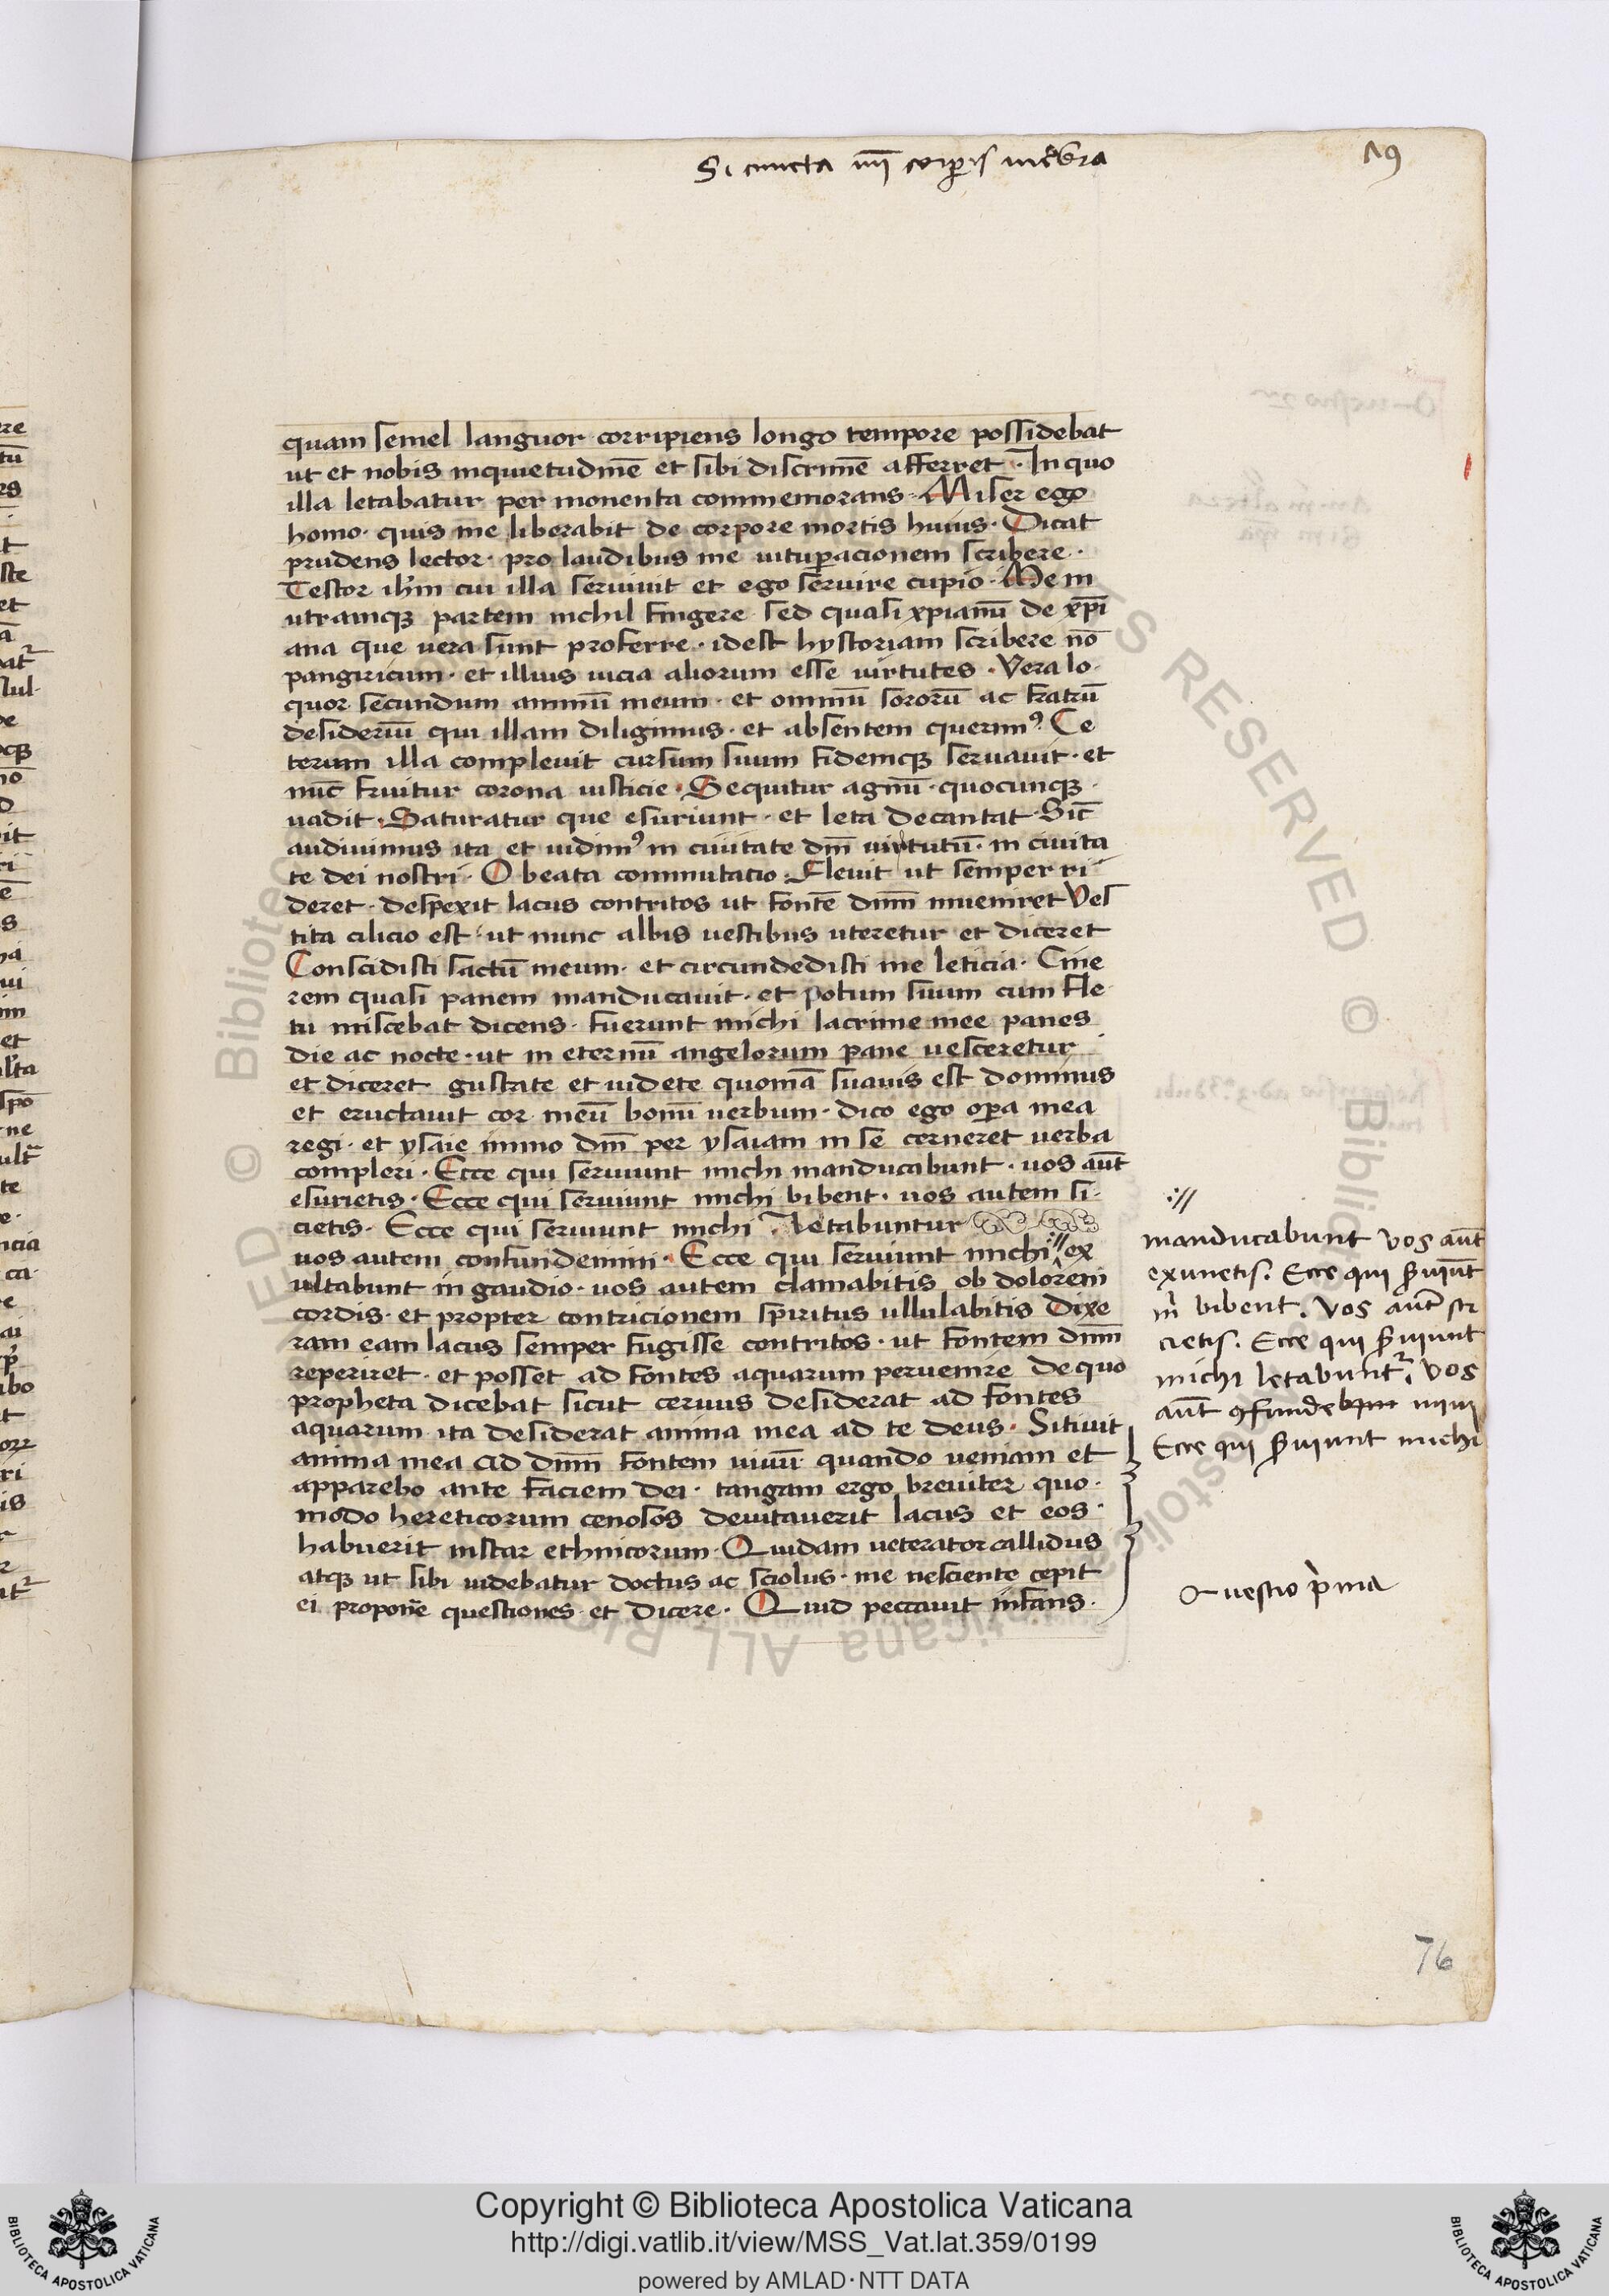 Si cuncta mi̅ corp̱is me̅bra
19
quam semel languor corripiens longo tempore possidebat
ut et nobis inquietudine̅ et sibi discrime̅ afferret · In quo
illa letabatur per monenta commemorans · Miser ego
homo · quis me liberabit de corpore mortis huius · Dicat
prudens lector · pro laudibus me uitup̱acionem scribere ·
Testor ih̅m cui illa seruiuit et ego seruire cupio · Me in
utramqꝫ partem nichil fingere sed quasi xp̅ianu̅ de xp̅i
ana que uera sunt proferre · idest hystoriam scribere no̅
pangiricum · et illius uicia aliorum esse uirtutes · Vera lo
quor secundum animu̅ meum · et omniu̅ sororu̅ ac fratru̅
desideriu̅ qui illam diligimus · et absentem querimꝰ · Ce
terum illa compleuit cursum suum fidemqꝫ seruauit · et
nu̅c fruitur corona iusticie · Sequitur agnu̅ · quocunqꝫ ·
uadit · Saturatur que esuriunt · et leta decantat · Sic̅
audiuimus ita et uidimꝰ in ciuitate dn̅i uirtutu̅ · in ciuita
te dei nostri · O beata commutacio · Fleuit ut semper ri
deret · despexit lacus contritos ut fonte̅ dn̅m inueniret Ves
tita cilicio est · ut nunc albis uestibus uteretur et diceret
Conscidisti sactu̅ meum · et circundedisti me leticia · Cine
rem quasi panem manducauit · et potum suum cum fle
tu miscebat dicens · fuerunt michi lacrime mee panes
die ac nocte · ut in eternu̅ angelorum pane uesceretur
et diceret gustate et uidete quonia̅ suauis est dominus
et eructauit cor meu̅ bonu̅ uerbum · dico ego op̱a mea
regi · et ysaie immo dn̅m per ysaiam in se cerneret uerba
compleri · Ecce qui seruiunt michi manducabunt · uos aut̅
esurietis · Ecce qui seruiunt michi bibent · uos autem si
cietis · Ecce qui seruiunt michi letabuntur
uos autem confundemini · Ecce qui seruiunt michi ://ex
ultabunt in gaudio · uos autem clamabitis ob dolorem
cordis · et propter contricionem sp̅iritus ullulabitis Dixe
ram eam lacus semper fugisse contritos · ut fontem dn̅m
reperiret · et posset ad fontes aquarum peruenire de quo
propheta dicebat sicut ceruus desiderat ad fontes
aquarum ita desiderat anima mea ad te deus · Sitiuit
anima mea ad dn̅m fontem uiuu̅ quando ueniam et
apparebo ante faciem dei · tangam ergo breuiter quo ·
modo hereticorum cenosos deuitauerit lacus et eos ·
habuerit instar ethnicorum · Quidam ueterator callidus
atqꝫ ut sibi uidebatur doctus ac sciolus · me nesciente cepit
ei propone̅ questiones et dicere · Quid peccauit infans ·
://
manducabunt vos aut̅
exurietis. Ecce qui s̅uiunt
m̍ bibent. vos aut̅ sti
cietis. Ecce qui s̅uiunt
michi letabuntᷣ. vos
aut̅ ꝯfunde mini
Ecce qui s̅uiunt michi
Questio p̍ma
76
Copyright © Biblioteca Apostolica Vaticana
http://digi.vatlib.it/view/MSS_Vat.lat.359/0199
powered by AMLAD·NTT DATA
BIBLIOTECA APOSTOLICA VATICANA
BIBLIOTECA APOSTOLICA VATICANA